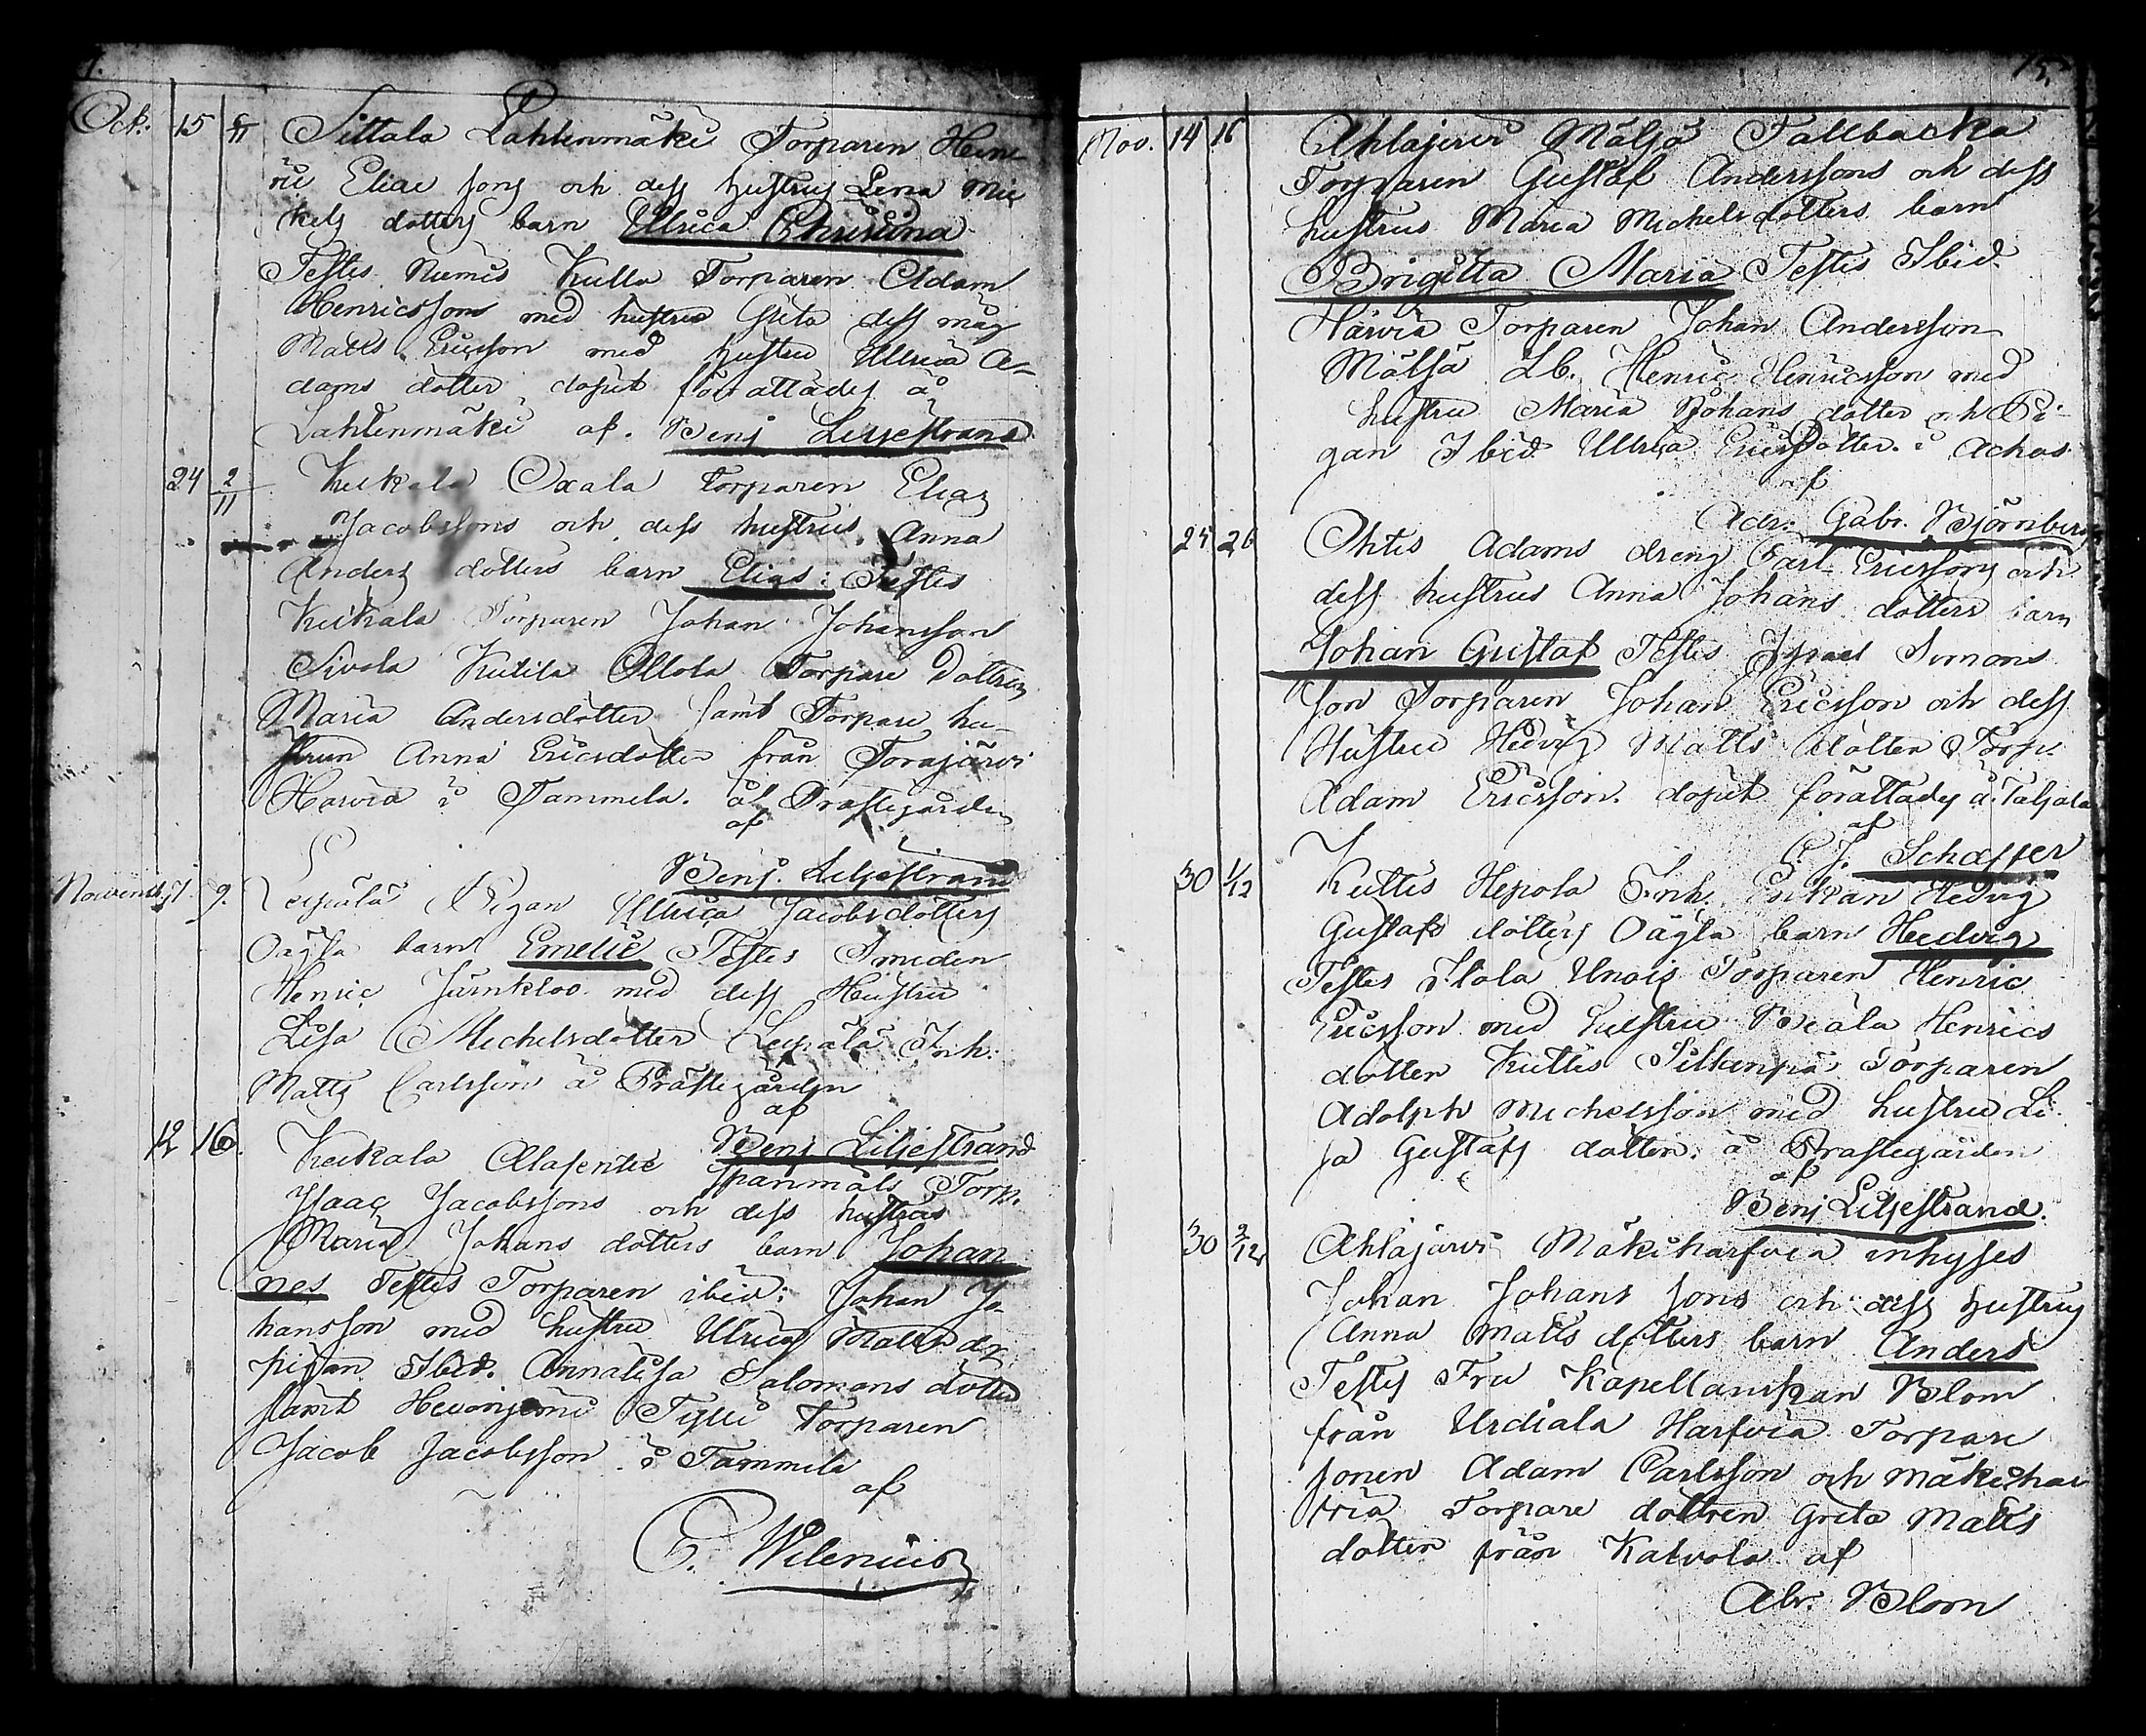 Oct. 15 Sittala Lahtenmäki Torparen Hein
ric Elias sons och dess hustrus Lena Mic
kels dotters barn Ullrica Christina
Testis Niemis Kulla Torparen Adam
Henricssons med hustru Greta dess måg
Matts Ericsson med hustru Ullrica A-
dams dotter doput förrättades å
Lahtenmäki af. Benj Liljestrand
24 2/11 Keikala Oxala Torparen Elias
Jacobssons och dess hustrus Anna
Anders dotters barn Elias: Testis
Keikala Torparen Johan Johansson
Sivola Ollola Torpare dottren
Maria Andersdotter samt Torpare hu-
strun Anna Ericsdotter från Torajärvi
Harvia i Tammela. å Prästegården
af
Benj. Liljestrand
Novemb. 7 9. Pigan Ullrica Jacobsdotters
Oägta barn Emelie Testis Smeden
Henric Järnkloo med dess Hustru
Lisa Michelsdotter Inh.
Matts Carlsson å Prästegården
af
Benj Liljestrand
12 16. Keikala Alapentti Spanmåls Torp.
Isaac Jacobssons och dess hustrus
Maria Johans dotters barn Johan
nes Testes Torparen ibid: Johan Jo-
hansson med hustru Ulrica Matts dr
pigan Ibid. Annalisa Salomons dotter
samt Torparen
Jacob Jacobsson i Tammela
af
C. Wilenius
15.
Nov. 14 16 Ahlajervi Mälsä Tallbacka
Torparen Gustaf Anderssons och dess
hustrus Maria Michelsdotters barn
Brigitta Maria Testis Ibid.
Harvia Torparen Johan Andersson
Mälsä Lb. Henric Henricsson med
hustru Maria Johans dotter och Pi-
gan Ibid Ullrica Ericsdotter. i Achas
af
Adr: Gabr. Björnberg
25 26 Ohtis Adams dreng Carl Ericssons och
dess hustrus Anna Johans dotters barn
Johan Gustaf Testes Israel Simons
son Torparen Johan Ericsson och dess
Hustru Hedvig Matts dotter Torp.
Adam Ericsson. doput förättades å Taljala
af
C. J. Schæffer
30 1/12 Kuttis Hepola Inh. Enkan Hedvig
Gustafs dotters Oägta barn Hedvig
Testes Flola Unois Torparen Henric
Ericsson med hustru Beata Henrics
dotter Kuttis Torparen
Adolph Michelsson med hustru Li-
sa Gustafs dotter. å Prästegården
af
Benj Liljestrand.
30 2/12 Ahlajärvi Mäkiharfvia inhyses
Johan Johans sons och dess hustrus
Anna Matts dotters barn Anders
Testes Fru Kapellanskan Blom
från Urdiala Harfvia Torpare
sonen Adam Carlsson och Mäkihar
fvia Torpare dottren Greta Matts
dotter från Kalvola af
Abr. Blom